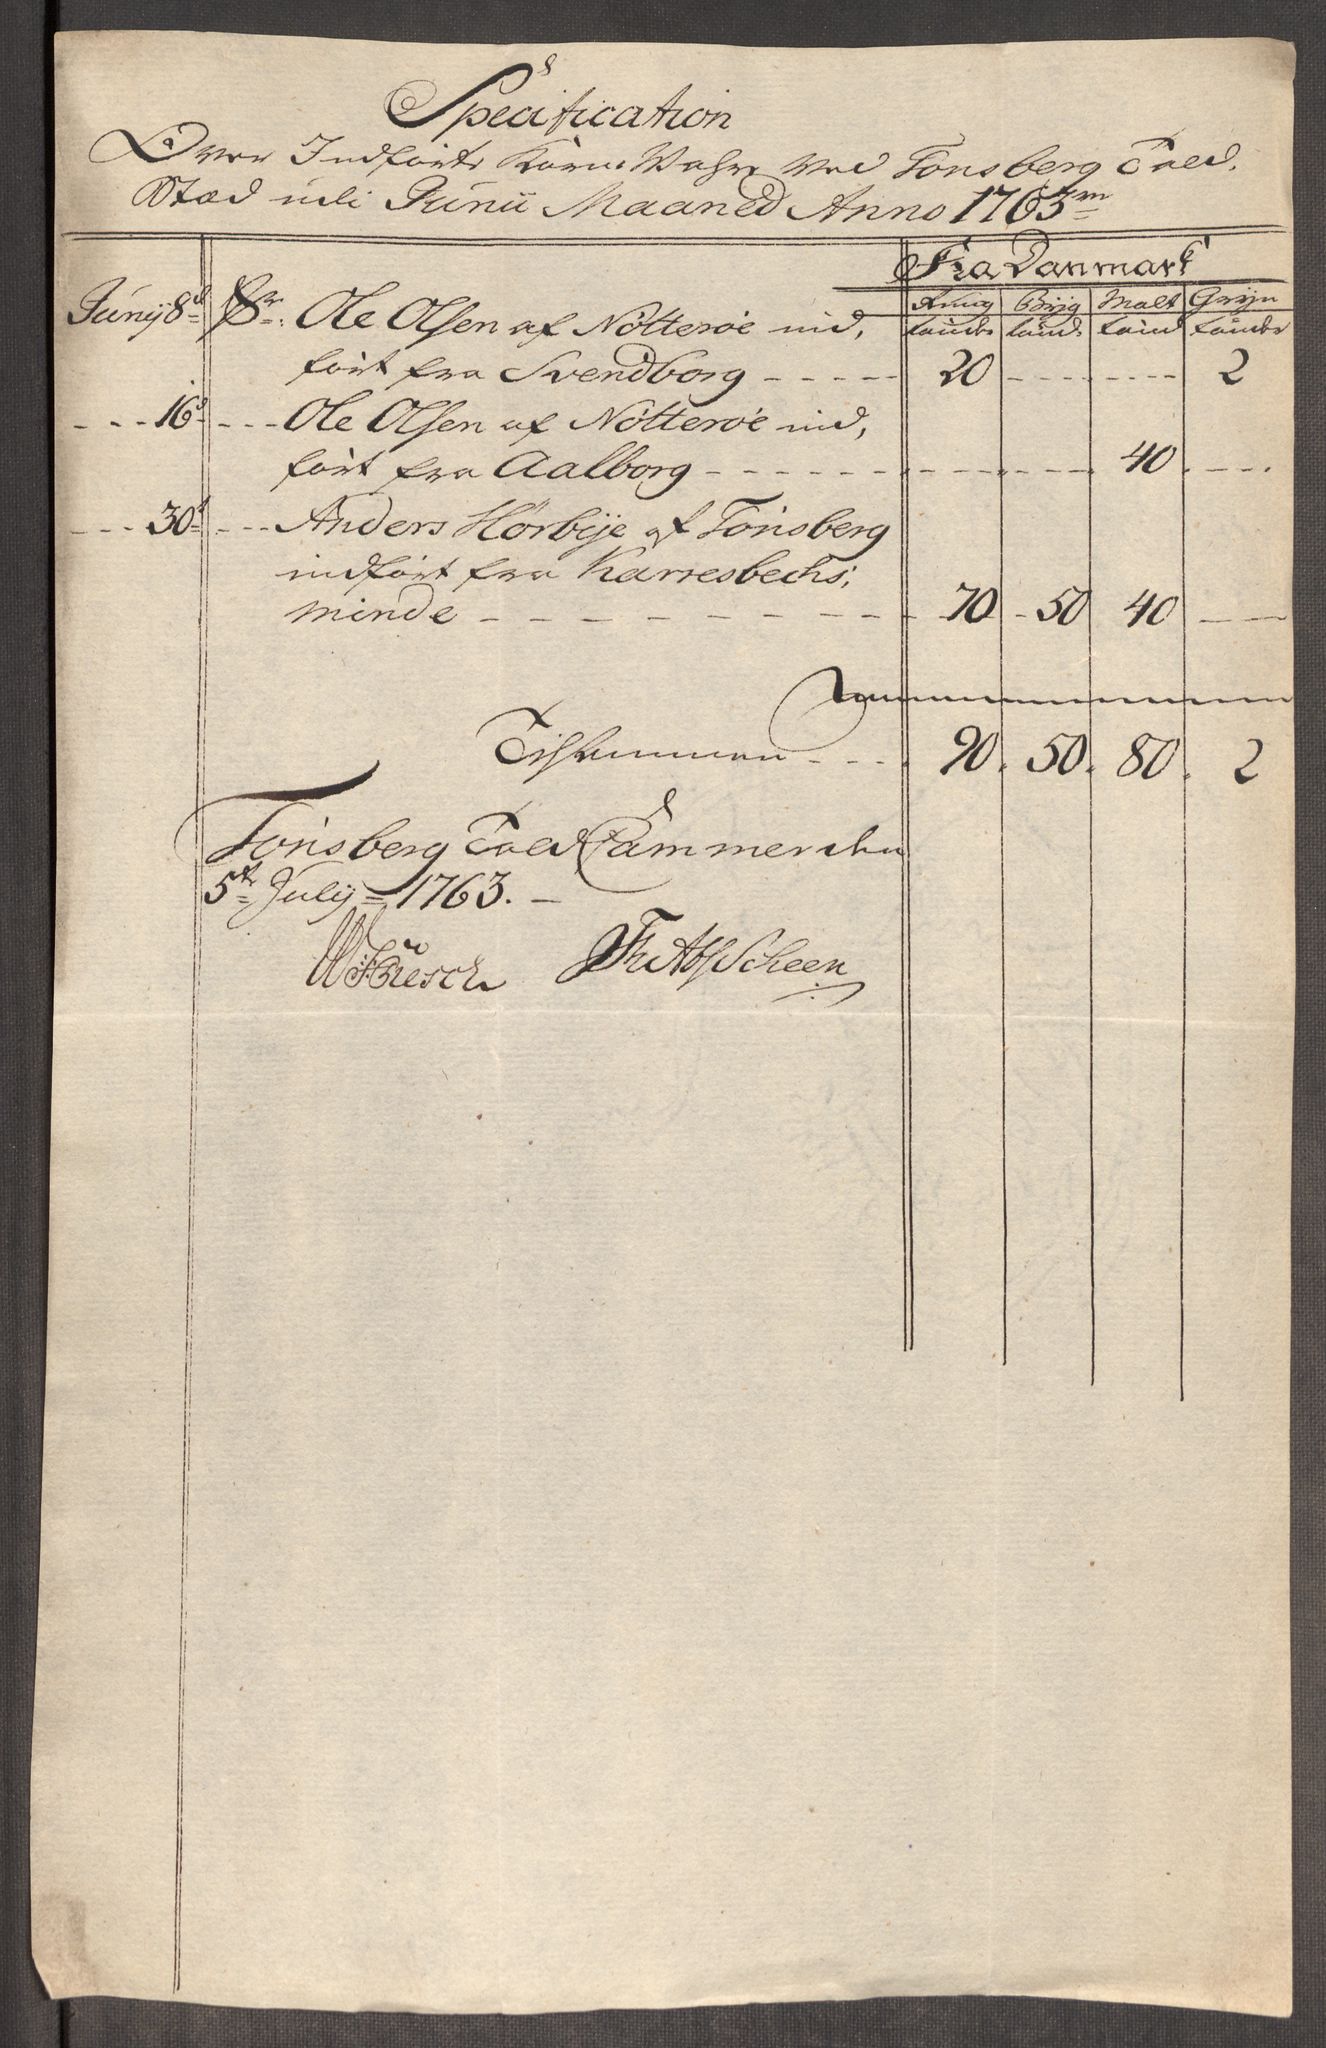 Specification
Over Indførte Korn-Vahre ved Tonsberg Told,
Stæd udi Junii Maaned Anno 1763
Fra Danmark
Rug Byg Malt Gryn
tønder tønd: tønd tønder
Juny 8d Sr: Ole Olsen af Nøtterøe ind,
ført fra Svendborg - - - - - 20 - - - - - - - 2
- - - 16d - - - Ole Olsen af Nøtterøe ind,
ført fra Aalborg - - - - - - - - - - - - 40 - - -
- - - 30d - - - Anders Hørbye af Tønsberg
indført fra Karresbechs,
minde - - - - - - - - - 70 - 50 40 - -
Tilsammen - - - 90. 50. 80. 2
Tønsberg Told Cammer den
5te July 1763. -
Scheen